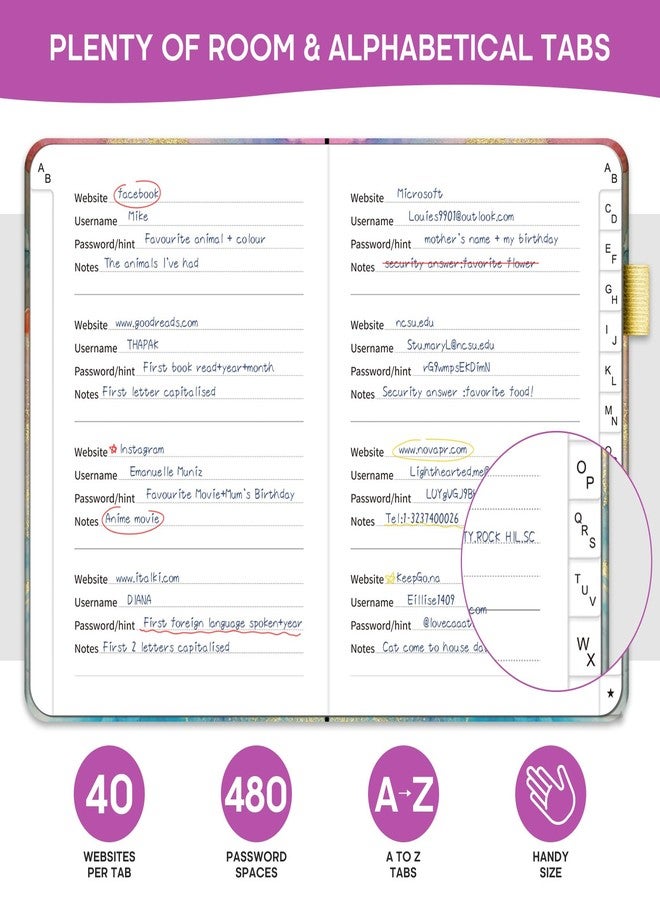 PLENTY OF ROOM & ALPHABETICAL TABS
A
B
Website facebook
Username Mike
Password/hint Favourite animal + colour
Notes The animals I've had
Website www.goodreads.com
Username THAPAK
Password/hint First book read+year+month
Notes First letter capitalised
Website Instagram
Username Emanuelle Muniz
Password/hint Favourite Movie+Mum's Birthday
Notes Anime movie
Website www.italki.com
Username DIANA
Password/hint First foreign language spoken+year
Notes First 2 letters capitalised
Website Microsoft
Username Louies9901@outlook.com
Password/hint mother's name + my birthday
Notes security answer:favorite flower
Website ncsu.edu
Username Stu.maryL@ncsu.edu
Password/hint rG9wmpsEKDimN
Notes Security answer :favorite food!
Website www.novapr.com
Username Lighthearted.me@
Password/hint LUYgVGJ9B
Notes Tel:1-3237400026
Website KeepGo.na
Username Eillise1409
Password/hint @lovecaaat
Notes Cat come to house da
TY,ROCK HIL,SC
.com
A
B
C
D
E
F
G
H
I
J
K
L
M
N
O
P
Q
R
S
T
U
V
W
X
★
40
WEBSITES
PER TAB
480
PASSWORD
SPACES
A→Z
A TO Z
TABS
HANDY
SIZE